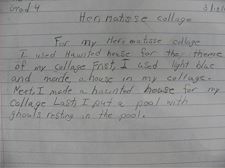 Grad 4
Heri matisse collage
For my Heri matisse collage
I used Hawnted house for the theme
of my collage Frist, I used light blue
and made a house in my collage.
Next, I made a haunted house for my
Collage Last, I put a pool with
ghouls resting in the pool.